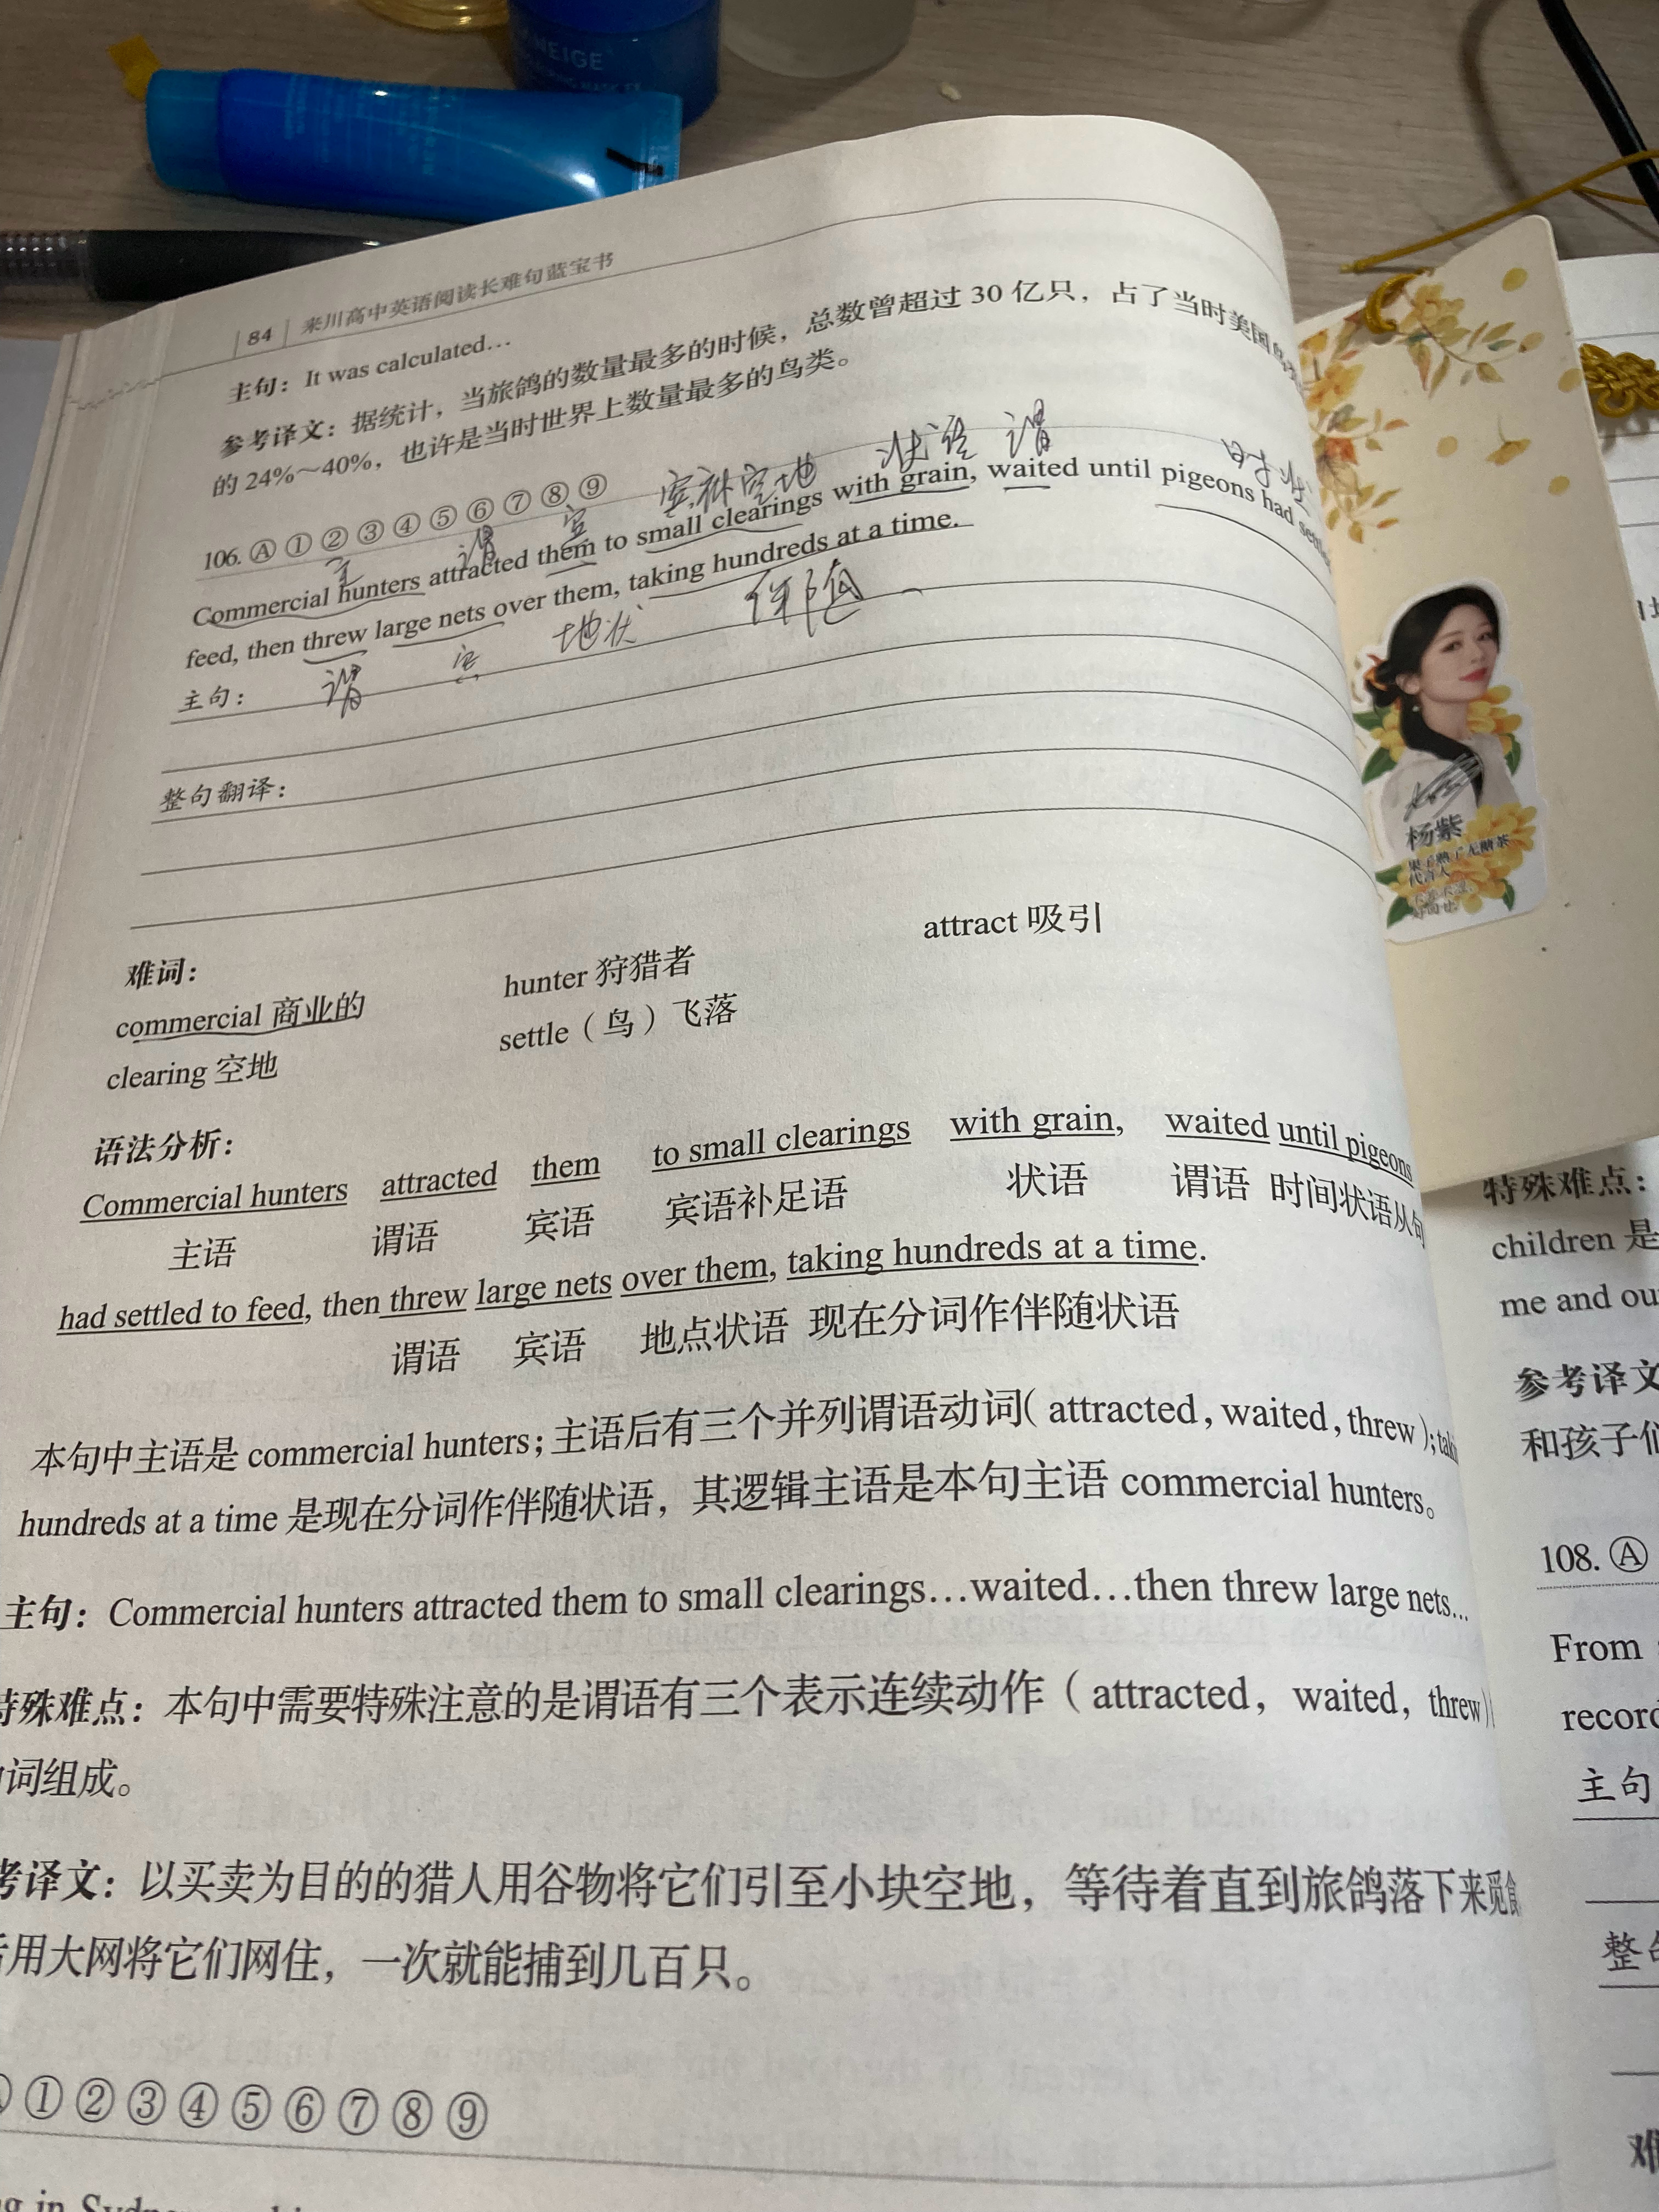 NEIGE
84 来川高中英语阅读长难句蓝宝书
主句：It was calculated…
参考译文：据统计，当旅鸽的数量最多的时候，总数曾超过 30 亿只，占了当时美国
的 24%～40%，也许是当时世界上数量最多的鸟类。
宾补 空地 状语 谓 时状
106. Ⓐ ① ② ③ ④ ⑤ ⑥ ⑦ ⑧ ⑨
主 谓 宾
Commercial hunters attracted them to small clearings with grain, waited until pigeons had
feed, then threw large nets over them, taking hundreds at a time.
主句： 谓 宾 地状 伴随
整句翻译：
难词：
commercial 商业的 hunter 狩猎者 attract 吸引
clearing 空地 settle（鸟）飞落
语法分析：
Commercial hunters attracted them to small clearings with grain, waited until pigeons
主语 谓语 宾语 宾语补足语 状语 谓语 时间状语从句
had settled to feed, then threw large nets over them, taking hundreds at a time.
谓语 宾语 地点状语 现在分词作伴随状语
本句中主语是 commercial hunters；主语后有三个并列谓语动词（attracted, waited, threw）；
hundreds at a time 是现在分词作伴随状语，其逻辑主语是本句主语 commercial hunters。
主句：Commercial hunters attracted them to small clearings…waited…then threw large nets…
特殊难点：本句中需要特殊注意的是谓语有三个表示连续动作（attracted，waited，threw）
词组成。
考译文：以买卖为目的的猎人用谷物将它们引至小块空地，等待着直到旅鸽落下来觅食
用大网将它们网住，一次就能捕到几百只。
① ② ③ ④ ⑤ ⑥ ⑦ ⑧ ⑨
in
杨紫
代言人
特殊难点：
children 是
me and
参考译文
和孩子们
108. Ⓐ
From
主句